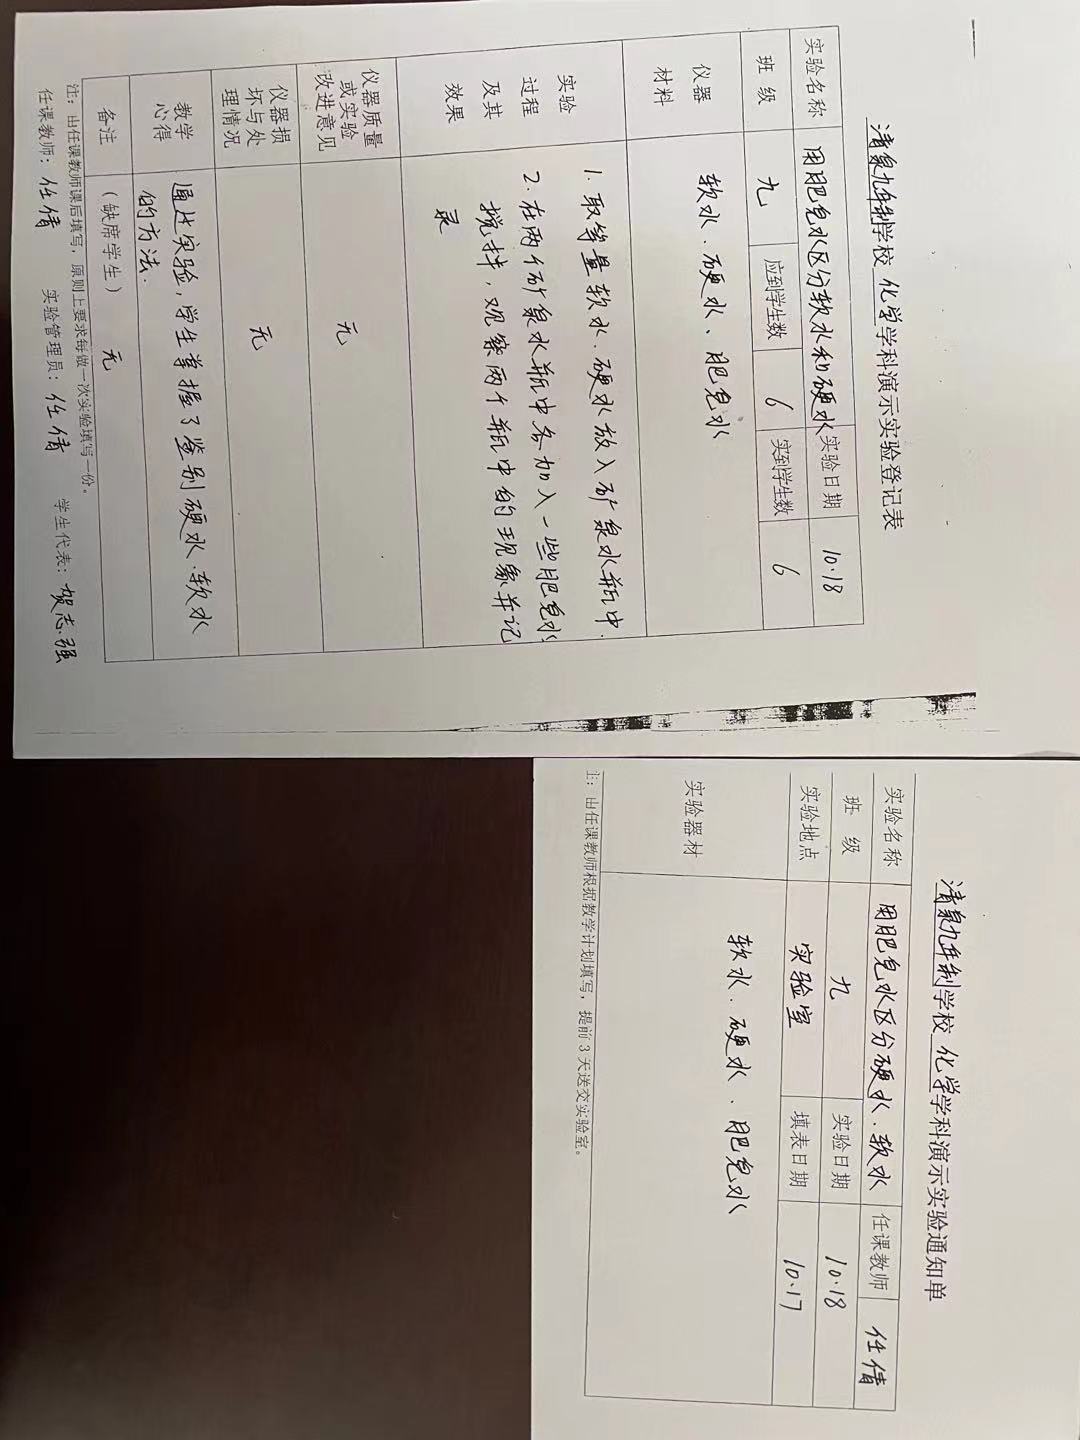 清泉九年制学校 化学学科演示实验登记表
实验名称 用肥皂水区分软水和硬水 实验日期 10.18
班 级 九 应到学生数 6 实到学生数 6
仪器
材料
软水、硬水、肥皂水
实验
过程
及其
效果
1. 取等量软水、硬水放入矿泉水瓶中.
2. 在两个矿泉水瓶中各加入一些肥皂水
搅拌，观察两个瓶中的现象并记
录
仪器质量
或实验
改进意见
无
仪器损
坏与处
理情况
无
教学
心得
通过实验，学生掌握了鉴别硬水、软水
的方法.
备注 （缺席学生） 无
注：由任课教师课后填写，原则上要求每做一次实验填写一份。
任课教师：任倩 实验管理员：任倩 学生代表：贺志强
清泉九年制学校 化学学科演示实验通知单
实验名称 用肥皂水区分硬水、软水 任课教师 任倩
班 级 九 实验日期 10.18
实验地点 实验室 填表日期 10.17
实验器材
软水、硬水、肥皂水
注：由任课教师根据教学计划填写，提前3天送交实验室。